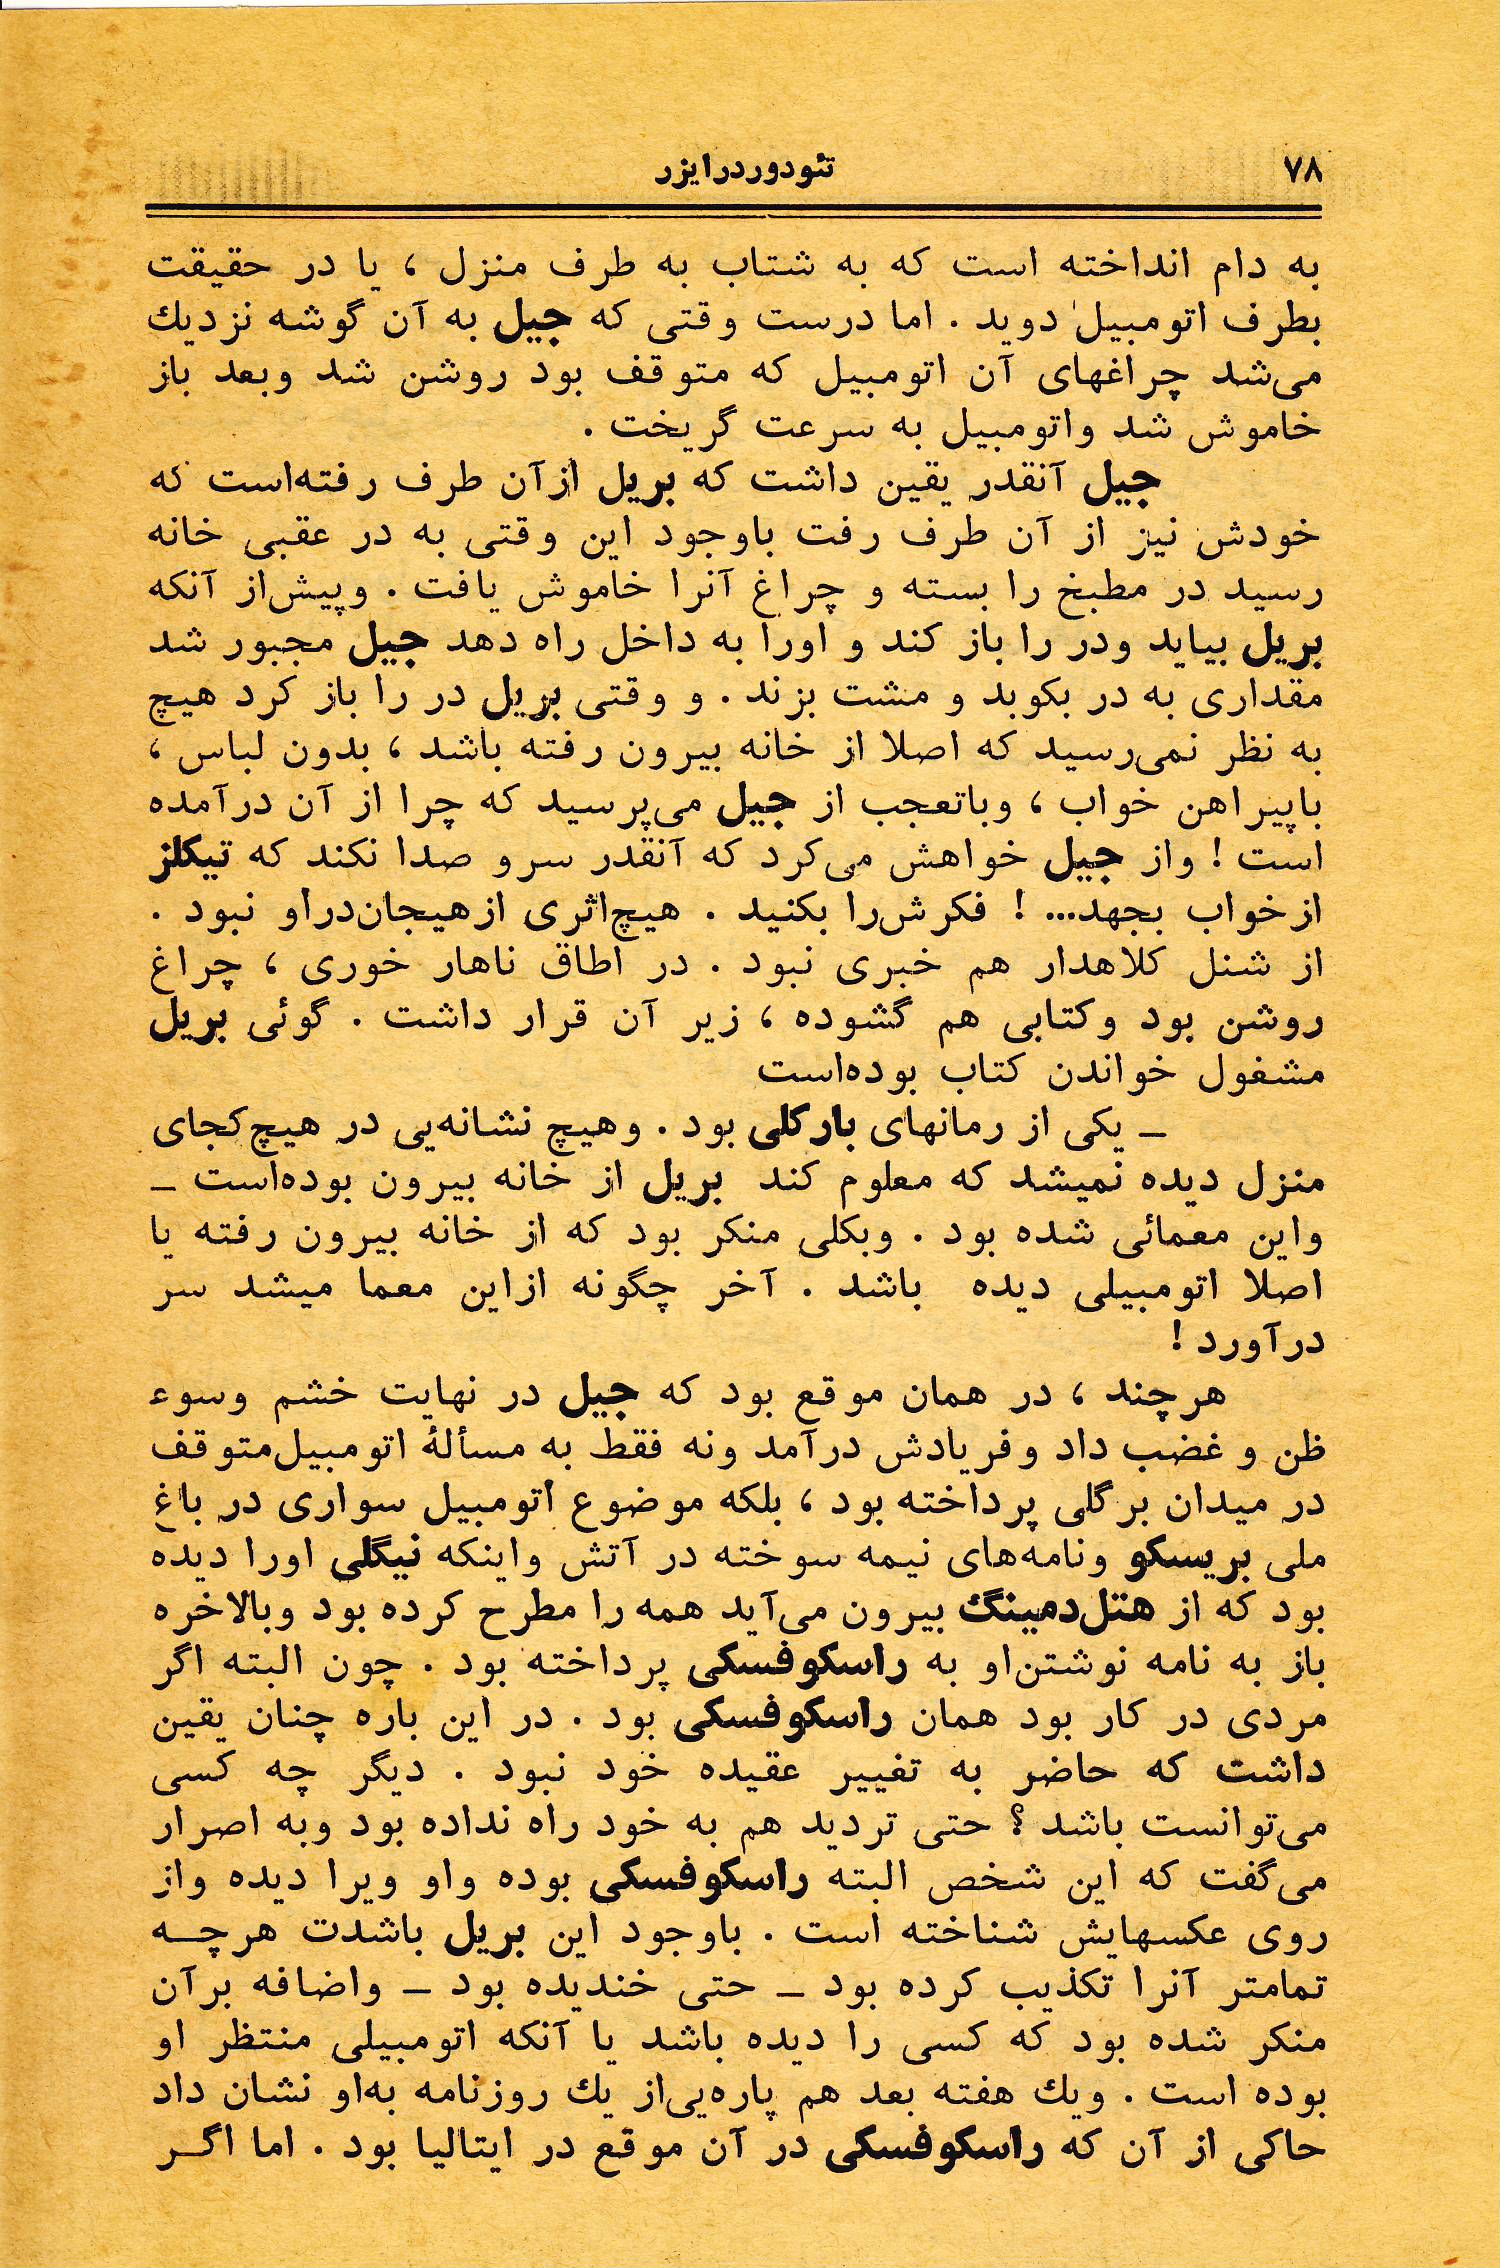 ۷۸
تئودوردرایزر
به دام انداخته است که به شتاب به طرف منزل ، یا در حقیقت
بطرف اتومبیل دوید . اما درست وقتی که جیل به آن گوشه نزدیك
می‌شد چراغهای آن اتومبیل که متوقف بود روشن شد وبعد باز
خاموش شد واتومبیل به سرعت گریخت .
جیل آنقدر یقین داشت که بریل ازآن طرف رفته‌است که
خودش نیز از آن طرف رفت باوجود این وقتی به در عقبی خانه
رسید در مطبخ را بسته و چراغ آنرا خاموش یافت . وپیش‌از آنکه
بریل بیاید ودر را باز کند و اورا به داخل راه دهد جیل مجبور شد
مقداری به در بکوبد و مشت بزند . و وقتی بریل در را باز کرد هیچ
به نظر نمی‌رسید که اصلا از خانه بیرون رفته باشد ، بدون لباس ،
باپیراهن خواب ، وباتعجب از جیل می‌پرسید که چرا از آن درآمده
است ! واز جیل خواهش می‌کرد که آنقدر سرو صدا نکند که تیکلز
ازخواب بجهد... ! فکرش‌را بکنید . هیچ‌اثری ازهیجان‌دراو نبود .
از شنل کلاهدار هم خبری نبود . در اطاق ناهار خوری ، چراغ
روشن بود وکتابی هم گشوده ، زیر آن قرار داشت . گوئی بریل
مشغول خواندن کتاب بوده‌است
ـ یکی از رمانهای بارکلی بود . وهیچ نشانه‌یی در هیچ‌کجای
منزل دیده نمیشد که معلوم کند بریل از خانه بیرون بوده‌است ـ
واین معمائی شده بود . وبکلی منکر بود که از خانه بیرون رفته یا
اصلا اتومبیلی دیده باشد . آخر چگونه ازاین معما میشد سر
درآورد !
هرچند ، در همان موقع بود که جیل در نهایت خشم وسوء
ظن و غضب داد وفریادش درآمد ونه فقط به مسألهٔ اتومبیل‌متوقف
در میدان برگلی پرداخته بود ، بلکه موضوع اتومبیل سواری در باغ
ملی بریسکو ونامه‌های نیمه سوخته در آتش واینکه نیگلی اورا دیده
بود که از هتل‌دمینگ بیرون می‌آید همه را مطرح کرده بود وبالاخره
باز به نامه نوشتن‌او به راسکوفسکی پرداخته بود . چون البته اگر
مردی در کار بود همان راسکوفسکی بود . در این باره چنان یقین
داشت که حاضر به تغییر عقیده خود نبود . دیگر چه کسی
می‌توانست باشد ؟ حتی تردید هم به خود راه نداده بود وبه اصرار
می‌گفت که این شخص البته راسکوفسکی بوده واو ویرا دیده واز
روی عکسهایش شناخته است . باوجود این بریل باشدت هرچــه
تمامتر آنرا تکذیب کرده بود ـ حتی خندیده بود ـ واضافه برآن
منکر شده بود که کسی را دیده باشد یا آنکه اتومبیلی منتظر او
بوده است . ویك هفته بعد هم پاره‌یی‌از یك روزنامه به‌او نشان داد
حاکی از آن که راسکوفسکی در آن موقع در ایتالیا بود . اما اگــر